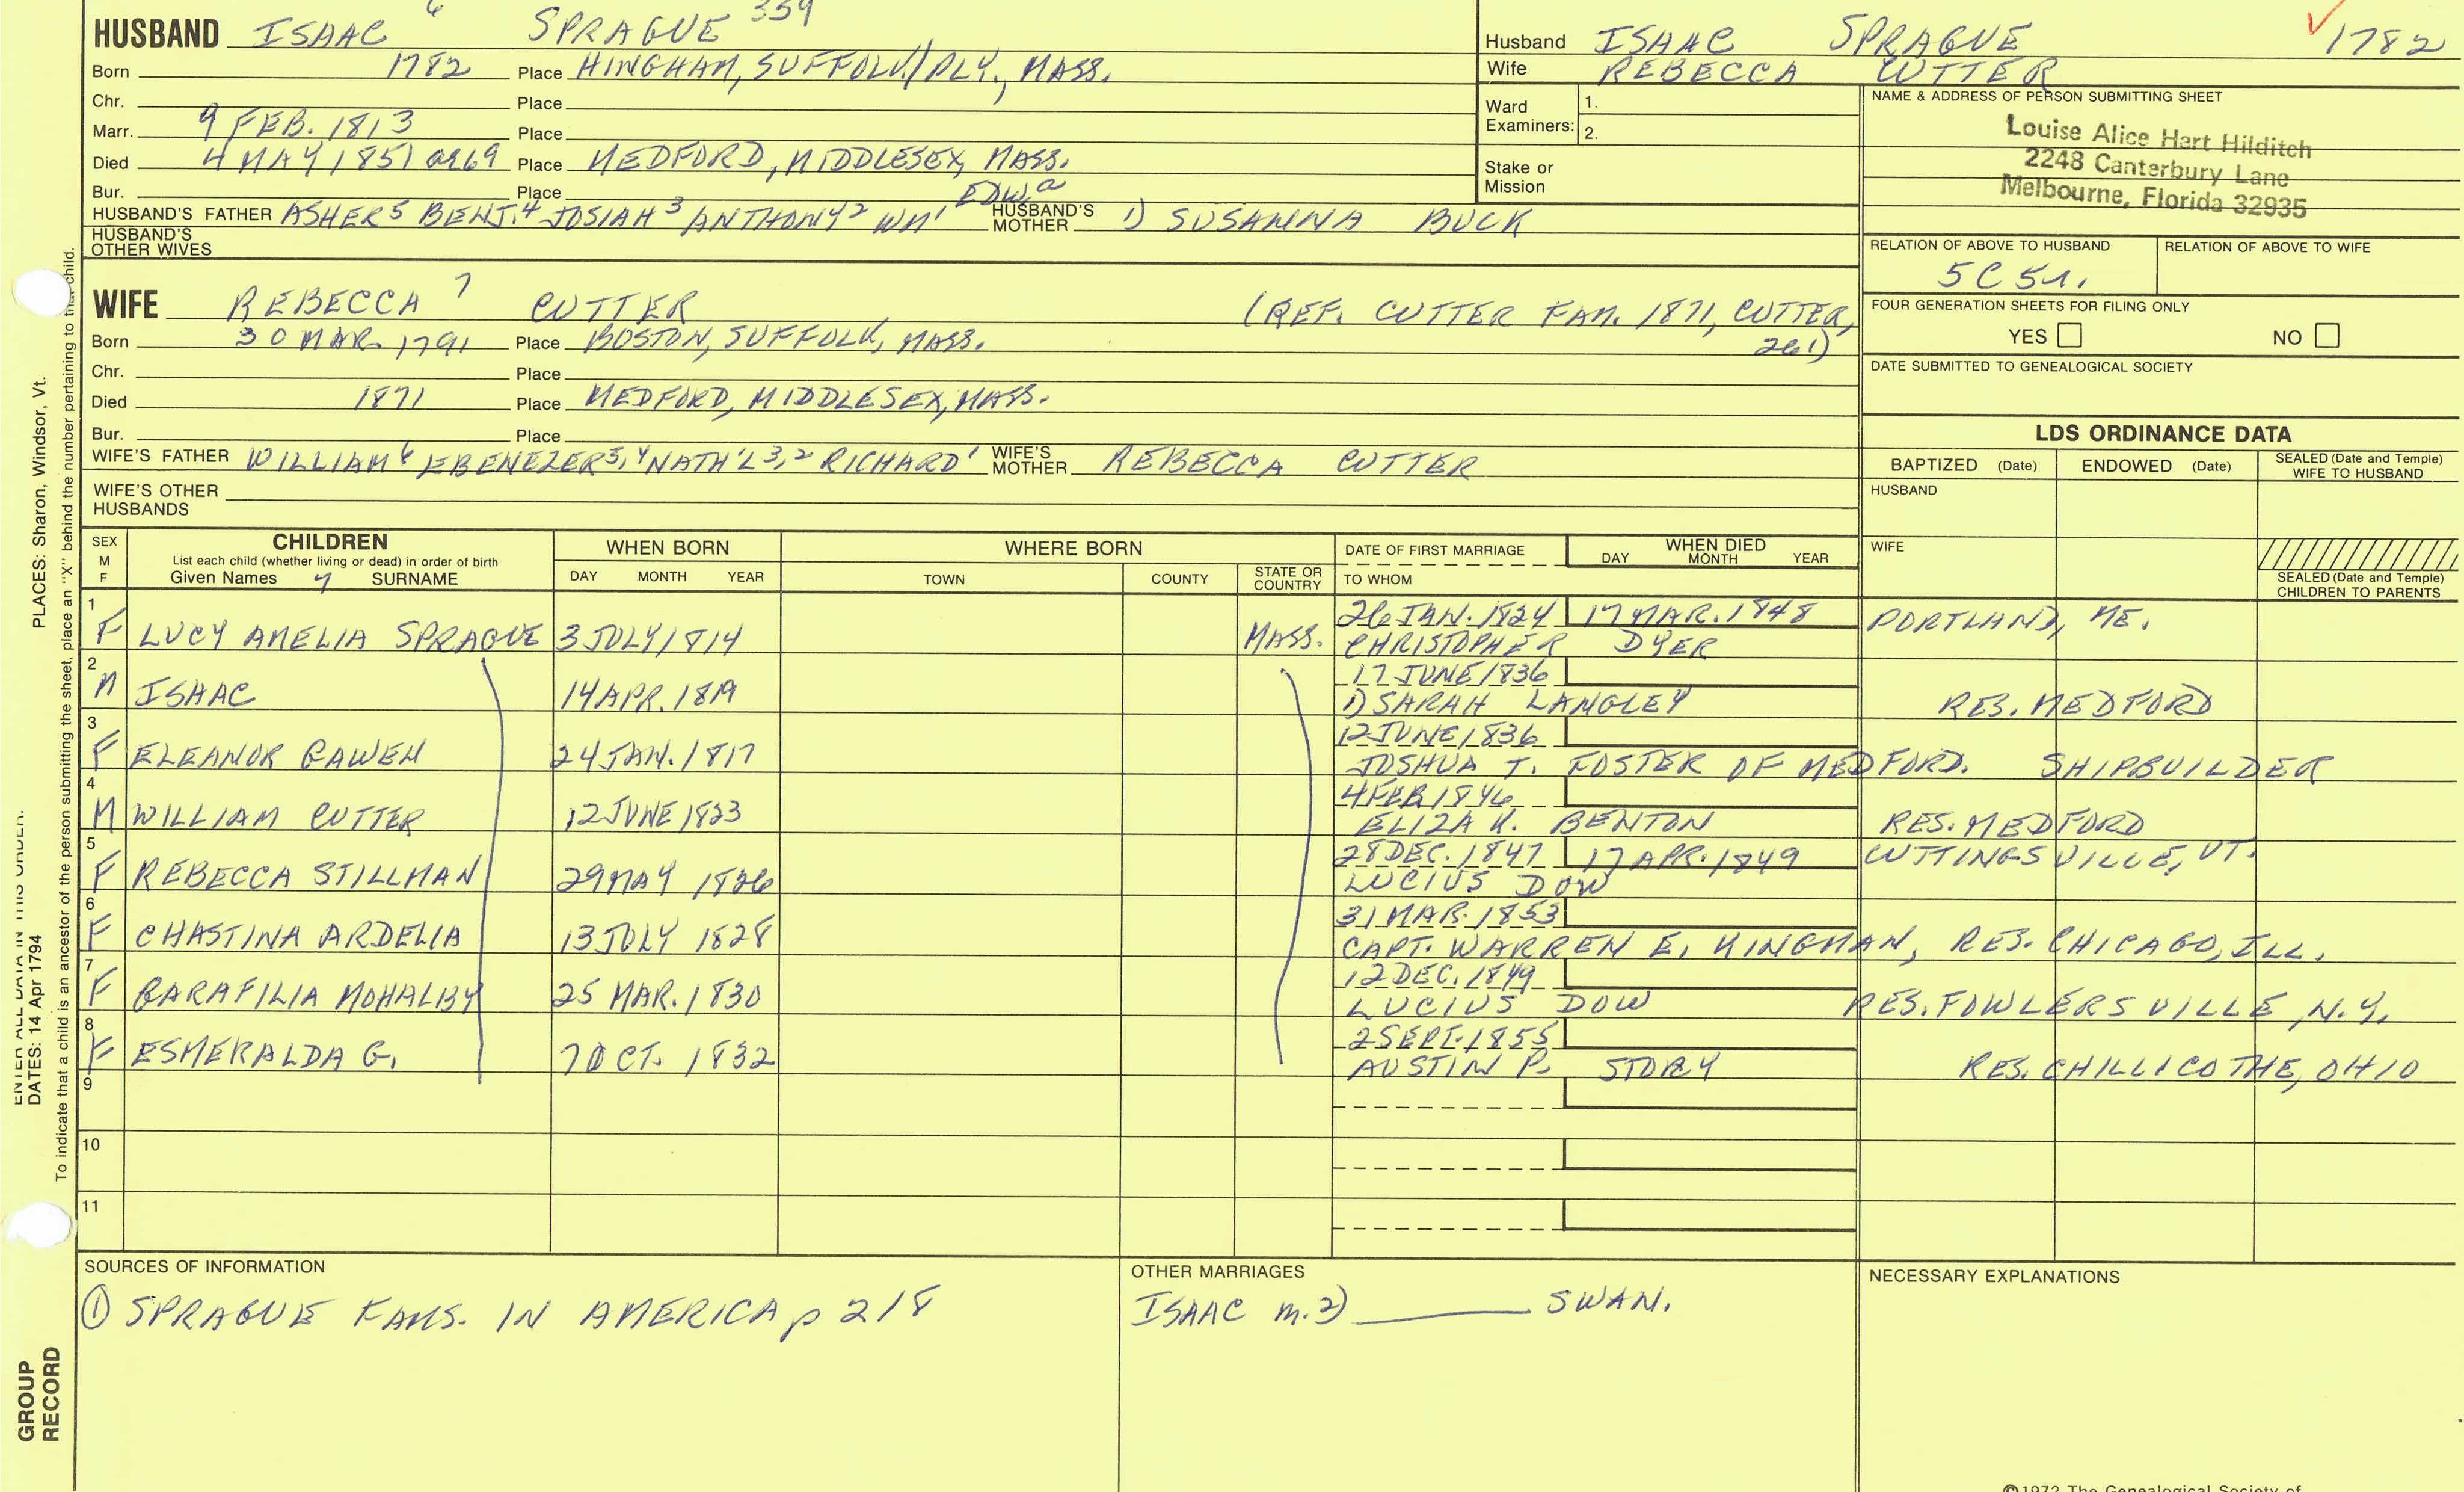 HUSBAND ISAAC 6 SPRAGUE 359
Born 1782 Place HINGHAM, SUFFOLK/PLY., MASS.
Chr. Place
Marr. 9 FEB. 1813 Place
Died 4 MAY 1851 ae69 Place MEDFORD, MIDDLESEX, MASS.
Bur. Place
EDWa
HUSBAND'S FATHER ASHER5 BENJ.4 JOSIAH3 ANTHONY2 WM1 HUSBAND'S MOTHER 1) SUSANNA BUCK
HUSBAND'S OTHER WIVES
Husband ISAAC SPRAGUE ✓1782
Wife REBECCA CUTTER
Ward Examiners: 1.
2.
Stake or Mission
NAME & ADDRESS OF PERSON SUBMITTING SHEET
Louise Alice Hart Hilditch
2248 Canterbury Lane
Melbourne, Florida 32935
RELATION OF ABOVE TO HUSBAND RELATION OF ABOVE TO WIFE
5C5r.
FOUR GENERATION SHEETS FOR FILING ONLY
YES NO
DATE SUBMITTED TO GENEALOGICAL SOCIETY
WIFE REBECCA 7 CUTTER (REF. CUTTER FAM. 1871, CUTTER,
261)
Born 30 MAR. 1791 Place BOSTON, SUFFOLK, MASS.
Chr. Place
Died 1871 Place MEDFORD, MIDDLESEX, MASS.
Bur. Place
WIFE'S FATHER WILLIAM6 EBENEZER5,4 NATH'L3,2 RICHARD1 WIFE'S MOTHER REBECCA CUTTER
WIFE'S OTHER HUSBANDS
LDS ORDINANCE DATA
BAPTIZED (Date) ENDOWED (Date) SEALED (Date and Temple) WIFE TO HUSBAND
HUSBAND
WIFE
SEALED (Date and Temple) CHILDREN TO PARENTS
SEX M F
CHILDREN
List each child (whether living or dead) in order of birth
Given Names 7 SURNAME
WHEN BORN
DAY MONTH YEAR
WHERE BORN
TOWN COUNTY STATE OR COUNTRY
DATE OF FIRST MARRIAGE
TO WHOM
WHEN DIED
DAY MONTH YEAR
1 F LUCY AMELIA SPRAGUE 3 JULY 1814 MASS. 26 JAN. 1824 17 MAR. 1848 PORTLAND, ME.
CHRISTOPHER DYER
2 M ISAAC 14 APR. 1819 17 JUNE 1836
1) SARAH LANGLEY RES. MEDFORD
3 F ELEANOR GAWEN 24 JAN. 1817 12 JUNE 1836
JOSHUA T. FOSTER OF MEDFORD. SHIPBUILDER
4 M WILLIAM CUTTER 12 JUNE 1823 4 FEB 1846
ELIZA K. BENTON RES. MEDFORD
5 F REBECCA STILLMAN 29 MAY 1826 28 DEC. 1847 17 APR. 1849 CUTTINGSVILLE, VT.
LUCIUS DOW
6 F CHASTINA ARDELIA 13 JULY 1828 31 MAR. 1853
CAPT. WARREN E. KINGMAN, RES. CHICAGO, ILL.
7 F GARAFILIA MOHALBY 25 MAR. 1830 12 DEC. 1849
LUCIUS DOW RES. FOWLERSVILLE, N.Y.
8 F ESMERALDA G. 7 OCT. 1832 2 SEPT. 1855
AUSTIN P. STORY RES. CHILLICOTHE, OHIO
9
10
11
SOURCES OF INFORMATION
① SPRAGUE FAMS. IN AMERICA p 218
OTHER MARRIAGES
ISAAC m. 2) ______ SWAN.
NECESSARY EXPLANATIONS
PLACES: Sharon, Windsor, Vt.
DATES: 14 Apr 1794
To indicate that a child is an ancestor of the person submitting the sheet, place an "X" behind the number pertaining to that child.
ENTER ALL DATA IN THIS ORDER:
GROUP RECORD
©1972 The Genealogical Society of